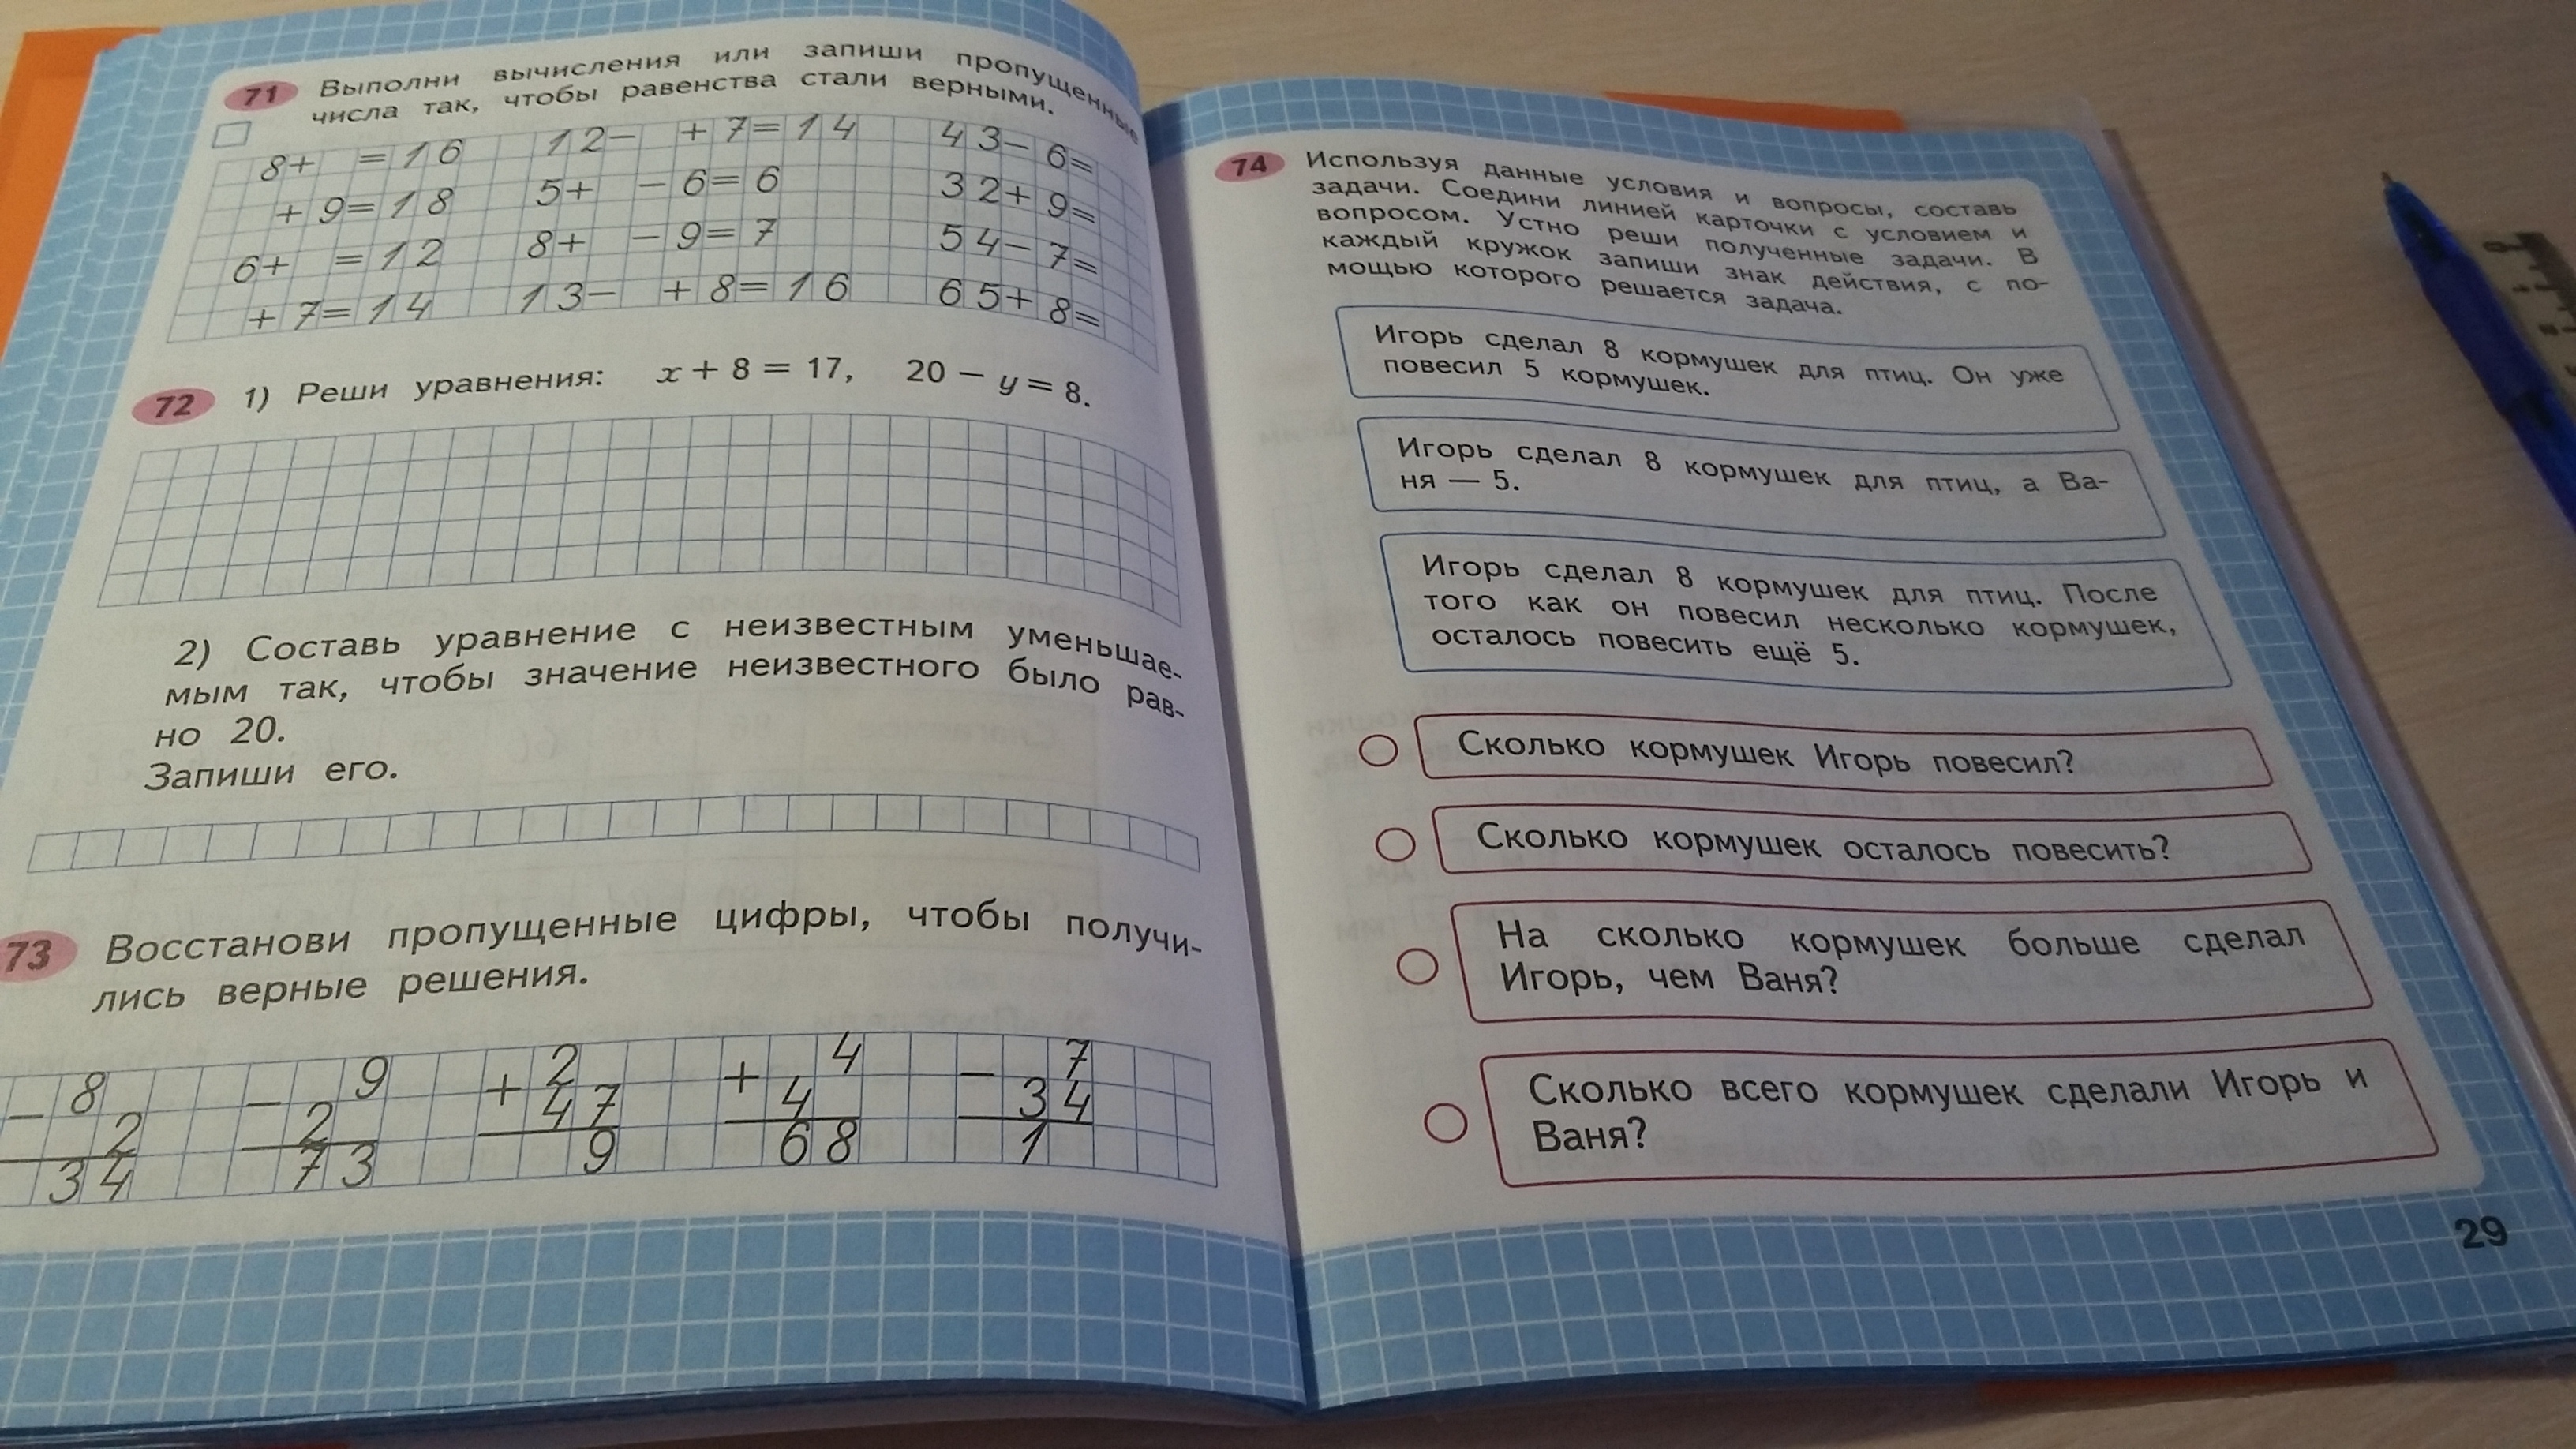 71 Выполни вычисления или запиши пропущенные
числа так, чтобы равенства стали верными.
8+ =16 12- +7=14 43-6=
+9=18 5+ -6=6 32+9=
6+ =12 8+ -9=7 54-7=
+7=14 13- +8=16 65+8=
72 1) Реши уравнения: x + 8 = 17, 20 − y = 8.
2) Составь уравнение с неизвестным уменьшае-
мым так, чтобы значение неизвестного было рав-
но 20.
Запиши его.
73 Восстанови пропущенные цифры, чтобы получи-
лись верные решения.
− 8 − 9 + 2 + 4 − 7
2 2 47 4 34
34 73 9 68 1
74 Используя данные условия и вопросы, составь
задачи. Соедини линией карточки с условием и
вопросом. Устно реши полученные задачи. В
каждый кружок запиши знак действия, с по-
мощью которого решается задача.
Игорь сделал 8 кормушек для птиц. Он уже
повесил 5 кормушек.
Игорь сделал 8 кормушек для птиц, а Ва-
ня — 5.
Игорь сделал 8 кормушек для птиц. После
того как он повесил несколько кормушек,
осталось повесить ещё 5.
Сколько кормушек Игорь повесил?
Сколько кормушек осталось повесить?
На сколько кормушек больше сделал
Игорь, чем Ваня?
Сколько всего кормушек сделали Игорь и
Ваня?
29